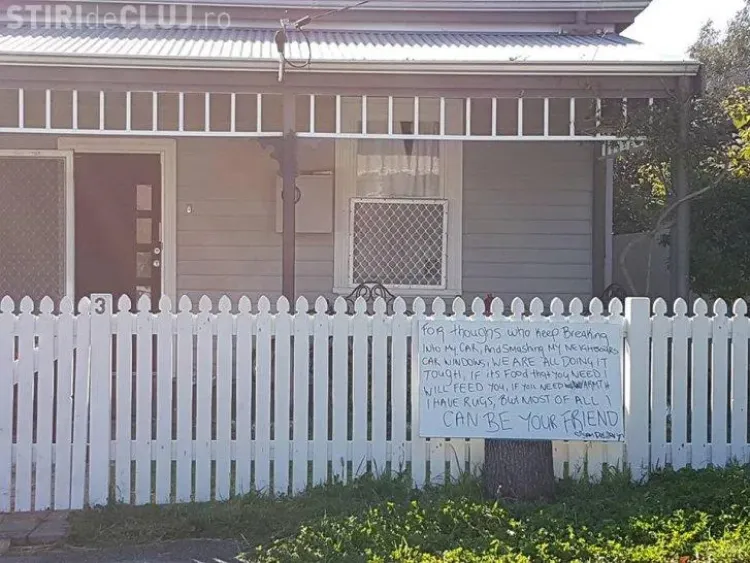 STIRIdeCLUJ.ro
3
FOR thoughs who keep BREAKING
INTO MY CAR, And SMAShING MY
CAR WINDOWS, WE ARE ALL DOING IT
TOUGH, IF its Food that you NEED I
WILL FEED YOU, IF YOU NEED WARMTH
I HAVE RUGS, BUT MOST OF ALL I
CAN BE YOUR FRIEND